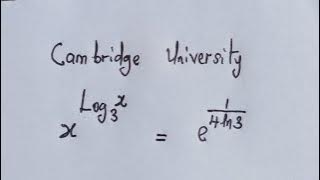 Cambridge University
x^{Log_3 x} = e^{\frac{1}{4 ln 3}}